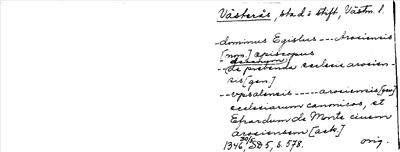 Västerås, stad o stift, Västm. l.
dominus Egislus --- Arosiensis
[nom.] episcopus
--- de prebenda ecclesie arosien-
sis [gen.]
-- vpsalensis --- arosiensis [gen]
ecclesiarum canonicos, et
Efrardum de Monte ciuem
arosiensem [ack.]
1346 30/5 SD 5, s. 578. orig.